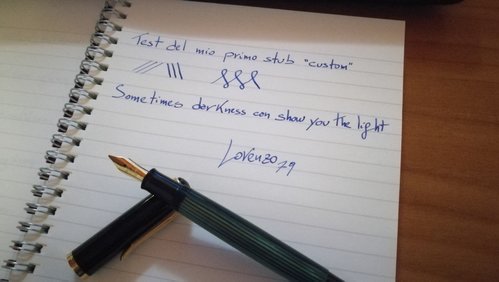 Test del mio primo stub "custom"
Sometimes darkness can show you the light
Lorenzo 79